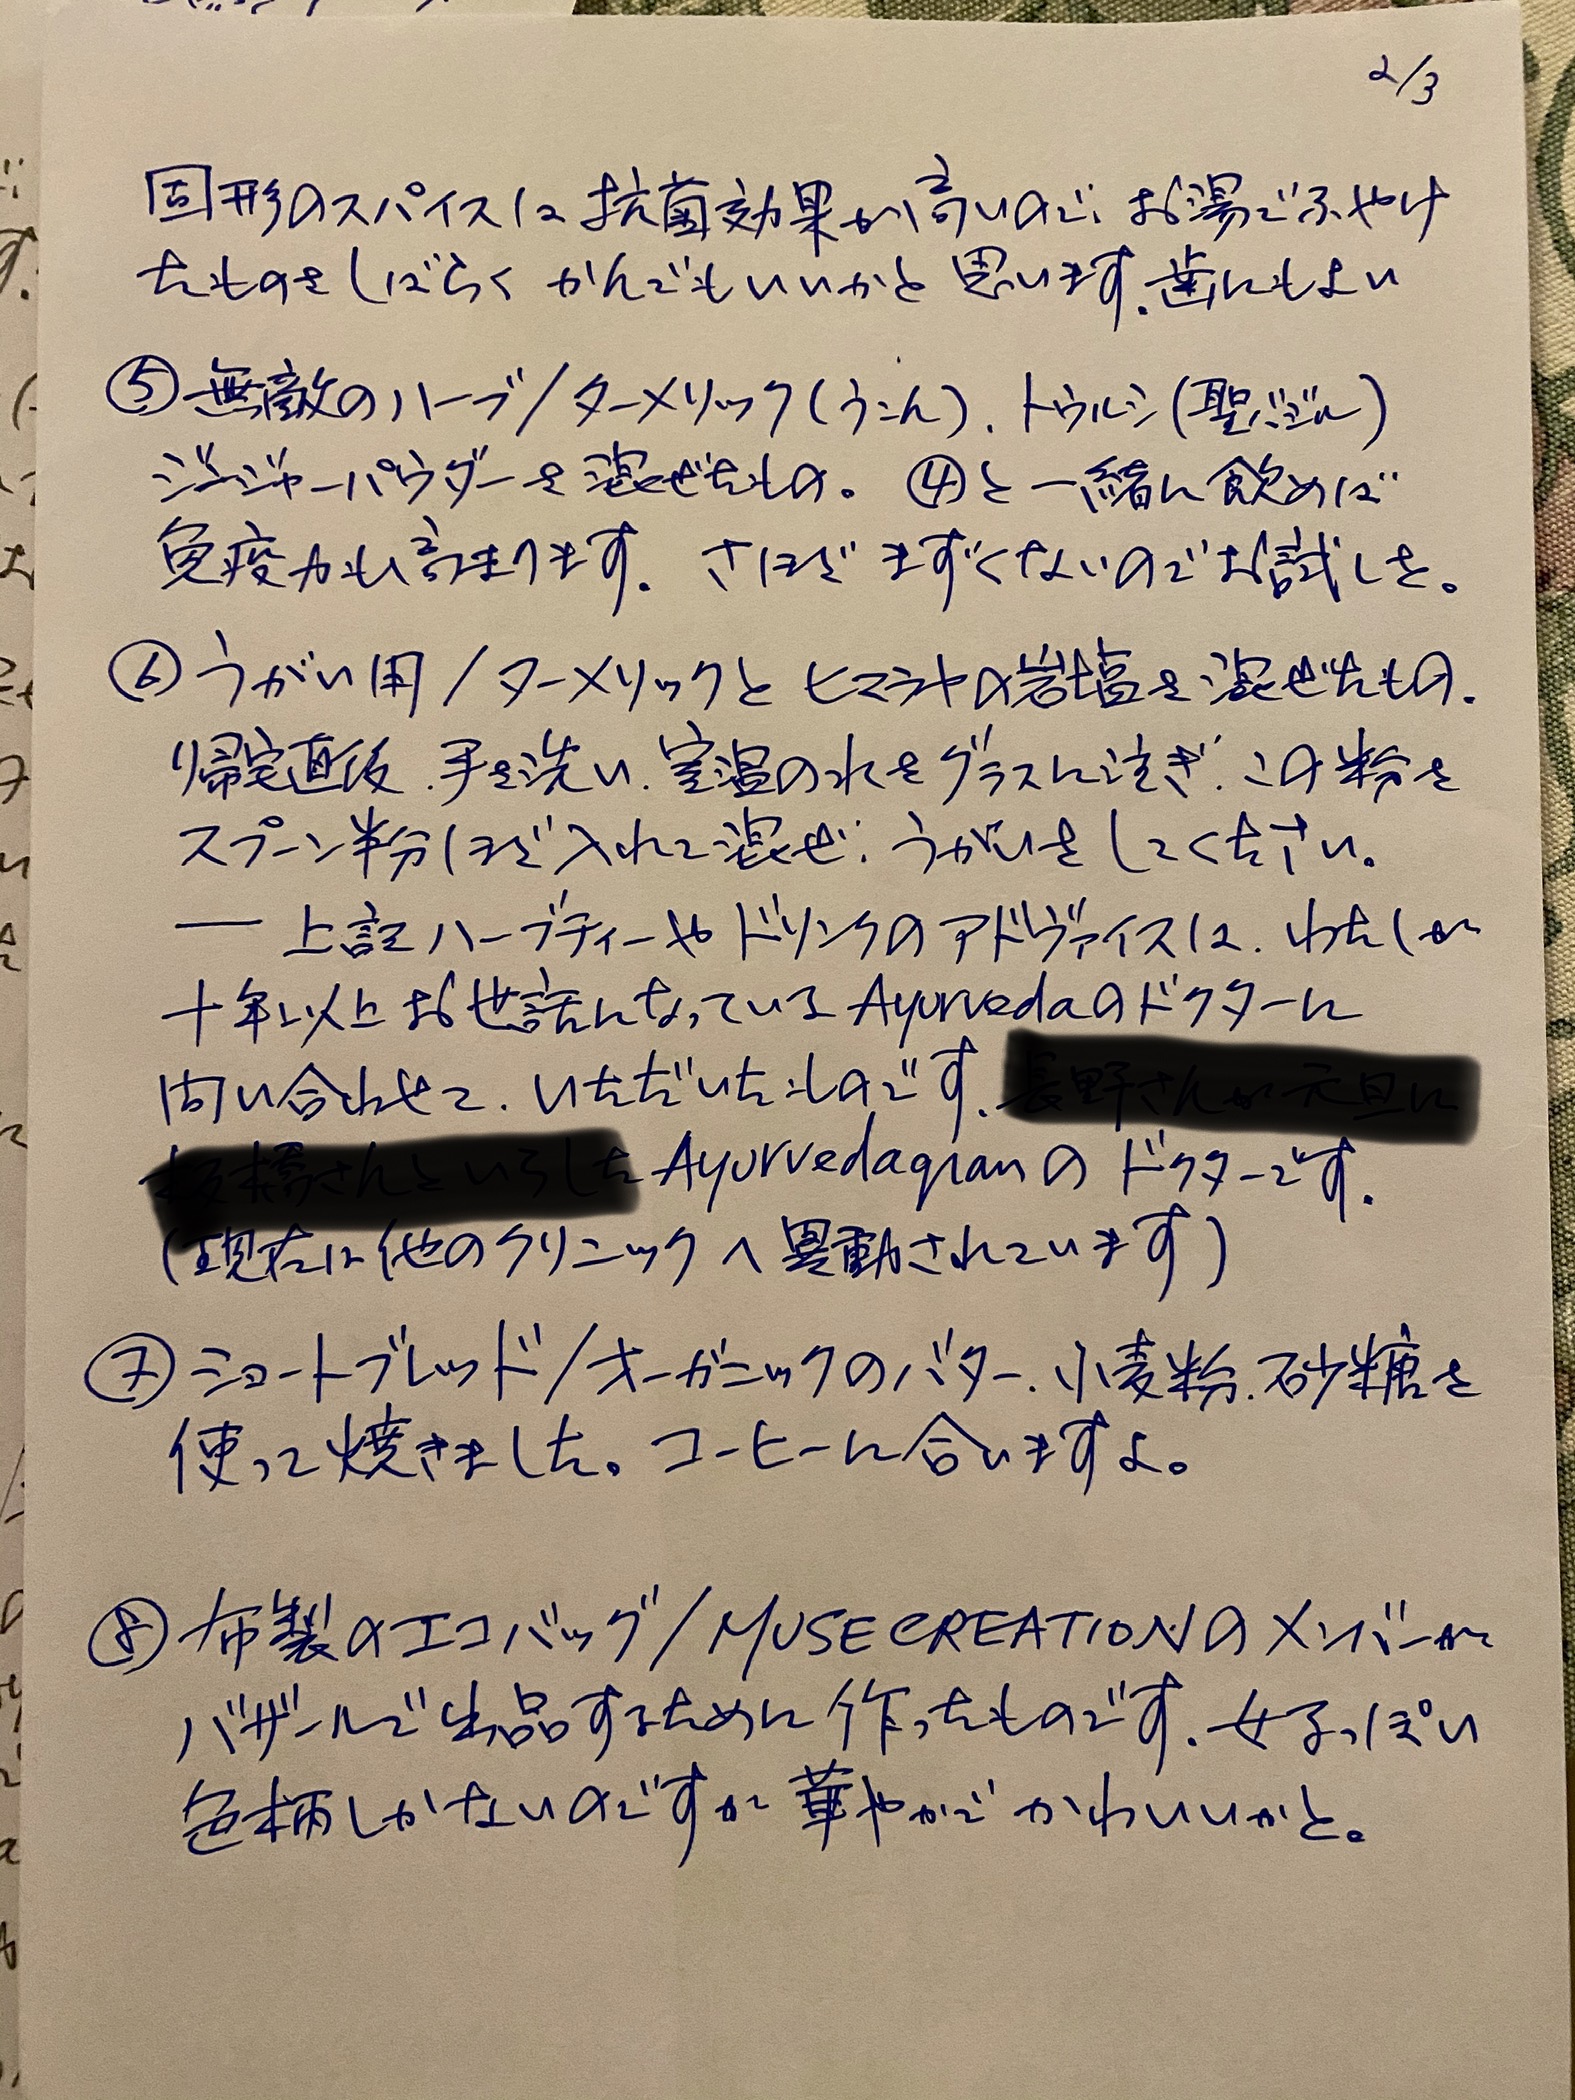 2/3
固形のスパイスは抗菌効果が高いので、お湯でふやけ
たものをしばらくかんでもいいかと思います。歯にもよい
⑤無敵のハーブ/ターメリック(うこん)、トゥルシ(聖バジル)
ジンジャーパウダーを混ぜたもの。④と一緒に飲めば
免疫力も高まります。さほどまずくないのでお試しを。
⑥うがい用/ターメリックとヒマラヤの岩塩を混ぜたもの。
帰宅直後、手を洗い、室温の水をグラスに注ぎ、この粉を
スプーン半分ほど入れて混ぜ、うがいをしてください。
― 上記ハーブティーやドリンクのアドヴァイスは、わたしが
十年以上お世話になっているAyurvedaのドクターに
問い合わせて、いただいたものです。
Ayurvedagramのドクターです。
(現在は他のクリニックへ異動されています)
⑦ショートブレッド/オーガニックのバター、小麦粉、砂糖を
使って焼きました。コーヒーに合いますよ。
⑧布製のエコバッグ/MUSE CREATIONのメンバーが
バザールで出品するために作ったものです。女子っぽい
色柄しかないのですが華やかでかわいいかと。